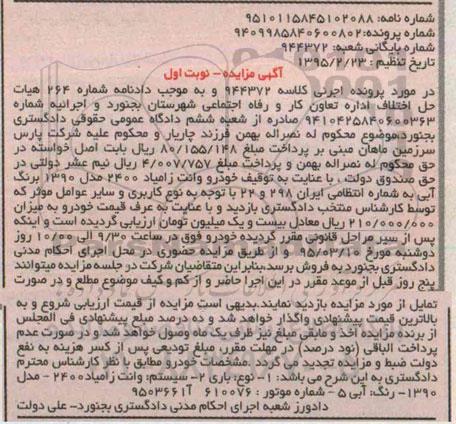 شماره نامه: ۹۵۱۰۱۱۵۸۴۵۱۰۲۰۸۸
شماره پرونده: ۹۴۰۹۹۸۵۸۴۰۶۰۰۸۰۲
شماره بایگانی شعبه: ۹۴۴۳۷۲
تاریخ تنظیم : ۱۳۹۵/۲/۲۳
آگهی مزایده – نوبت اول
در مورد پرونده اجرئی کلاسه ۹۴۴۳۷۲ و به موجب دادنامه شماره ۲۶۴ هیات
حل اختلاف اداره تعاون کار و رفاه اجتماعی شهرستان بجنورد و اجرائیه شماره
۹۴۱۰۴۲۵۸۴۰۶۰۰۳۶۳ صادره از شعبه ششم دادگاه عمومی حقوقی دادگستری
بجنورد،موضوع محکوم له نصراله بهمن فرزند چاریار و محکوم علیه شرکت پارس
سرزمین ماهان مبنی بر پرداخت مبلغ ۸۰/۱۵۵/۱۴۸ ریال بابت اصل خواسته در
حق محکوم له نصراله بهمن و پرداخت مبلغ ۴/۰۰۷/۷۵۷ ریال نیم عشر دولتی در
حق صندوق دولت ، با عنایت به توقیف خودرو وانت زامیاد ۲۴۰۰ مدل ۱۳۹۰ برنگ
آبی به شماره انتظامی ایران ۲۹۸ و ۲۲ با توجه به نوع کاربری و سایر عوامل موثر که
توسط کارشناس منتخب دادگستری بازدید و با عنایت به عرف قیمت خودرو به میزان
۲۱۰/۰۰۰/۰۰۰ ریال معادل بیست و یک میلیون تومان ارزیابی گردیده است و اینکه
پس از سیر مراحل قانونی مقرر گردیده خودرو فوق در ساعت ۹/۳۰ الی ۱۰/۰۰ روز
دوشنبه مورخ ۹۵/۰۳/۱۰ و از طریق مزایده حضوری در محل اجرای احکام مدنی
دادگستری بجنورد به فروش برسد،بنابراین متقاضیان شرکت در جلسه مزایده میتوانند
پنج روز قبل از موعد مقرر در این اجرا حاضر و از کم و کیف موضوع مطلع و در صورت
تمایل از مورد مزایده بازدید نمایند.بدیهی است مزایده از قیمت ارزیابی شروع و به
بالاترین قیمت پیشنهادی واگذار خواهد شد و ده درصد مبلغ پیشنهادی فی المجلس
از برنده مزایده اخذ و مابقی مبلغ نیز ظرف یک ماه وصول خواهد شد و در صورت عدم
پرداخت الباقی (نود درصد) در مهلت مقرر، مبلغ تودیعی پس از کسر هزینه به نفع
دولت ضبط و مزایده تجدید می گردد .مشخصات خودرو مطابق با نظر کارشناس محترم
دادگستری به این شرح می باشد: ۱- نوع: باری ۲- سیستم: وانت زامیاد۲۴۰۰ - مدل
۱۳۹۰- رنگ: آبی ۵ - شماره موتور : ۶۱۰۰۷۶ ۹۵۰۳۶۶۱آ
دادورز شعبه اجرای احکام مدنی دادگستری بجنورد- علی دولت